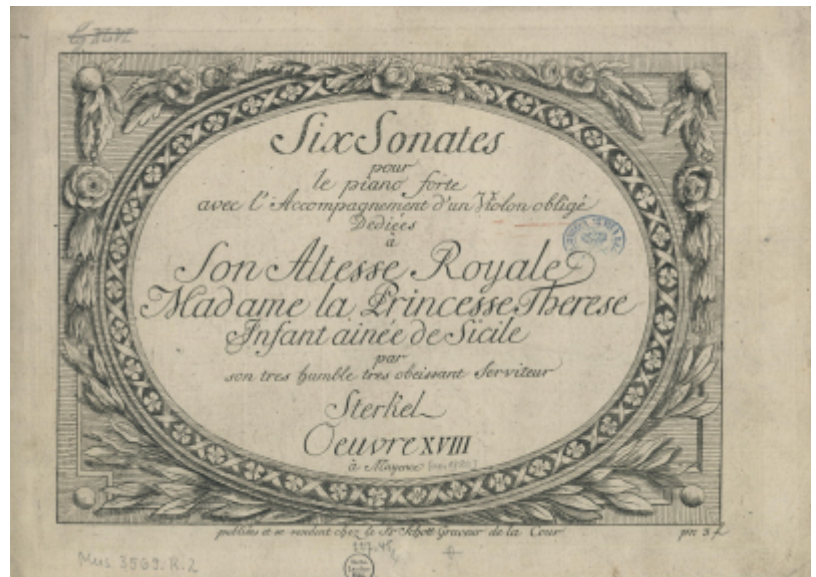 Six Sonates
pour
le piano forte
avec l'Accompagnement d'un Violon obligé
Dediées
à
Son Altesse Royale
Madame la Princesse Therese
Infant ainée de Sicile
par
son tres humble tres obeissant Serviteur
Sterkel
Oeuvre XVIII
à Mayence
publiées et se vendent chez le Sr Schott Graveur de la Cour
prix 5 f.
Mus. 3569. R. 2